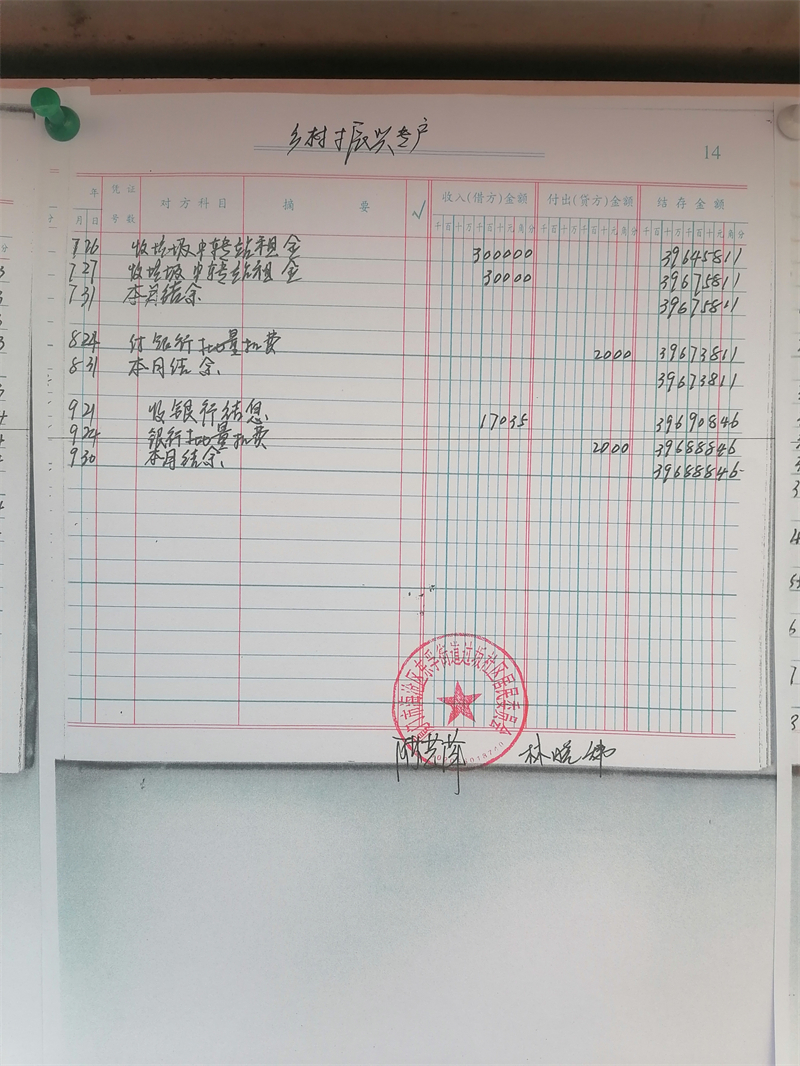 乡村振兴专户
14
年 凭证 对方科目 摘要 √ 收入(借方)金额 付出(贷方)金额 结存金额
月 日 号数 千百十万千百十元角分 千百十万千百十元角分 千百十万千百十元角分
7 26 收垃圾中转站租金 300000 39645811
7 27 收垃圾中转站租金 30000 39675811
7 31 本月结余 39675811
8 24 付银行批量扣费 2000 39673811
8 31 本月结余. 39673811
9 21 收银行结息 17035 39690846
9 24 银行批量扣费 2000 39688846
9 30 本月结余. 39688846
街道过坂社区居民委员会
林晓